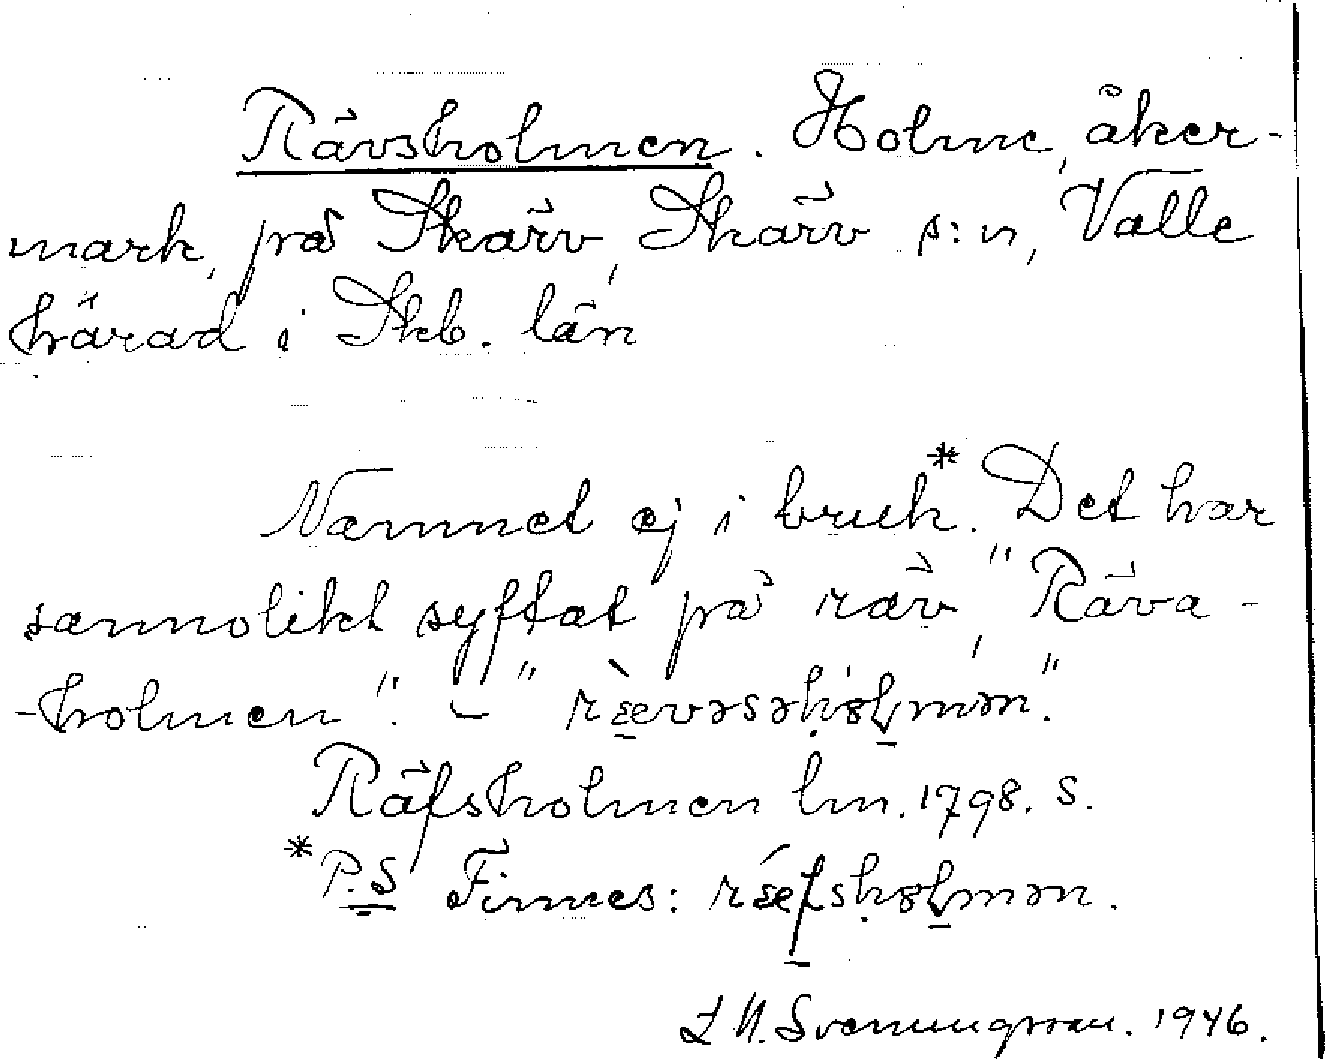 Rävsholmen. Holme, åker-
mark, på Skärv, Skärv s:n, Valle
härad i Skb. län
Namnet ej i bruk.* Det har
sannolikt syftat på räv, "Räva-
-holmen". – "rævəsəhɷlmən".
Räfsholmen lm. 1798. S.
*P.S Finnes: ræfshɷlmən.
L N. Svenungsson. 1946.